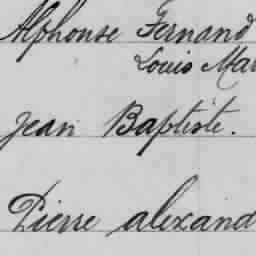 Alphonse Fernand
Louis Mar
Jean Baptiste.
Pierre alexand